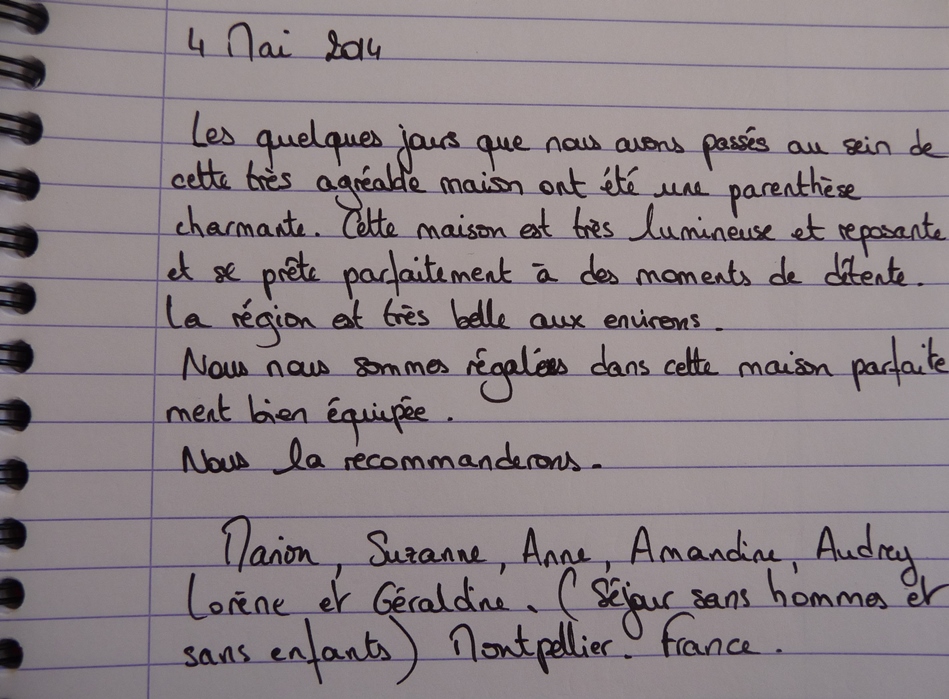 4 Mai 2014
Les quelques jours que nous avons passés au sein de
cette très agréable maison ont été une parenthèse
charmante. Cette maison est très lumineuse et reposante
et se prête parfaitement à des moments de détente.
La région est très belle aux environs.
Nous nous sommes régalées dans cette maison parfaite
ment bien équipée.
Nous la recommanderons.
Marion, Suzanne, Anne, Amandine, Audrey
Lorène et Géraldine. (Séjour sans hommes et
sans enfants) Montpellier. France.